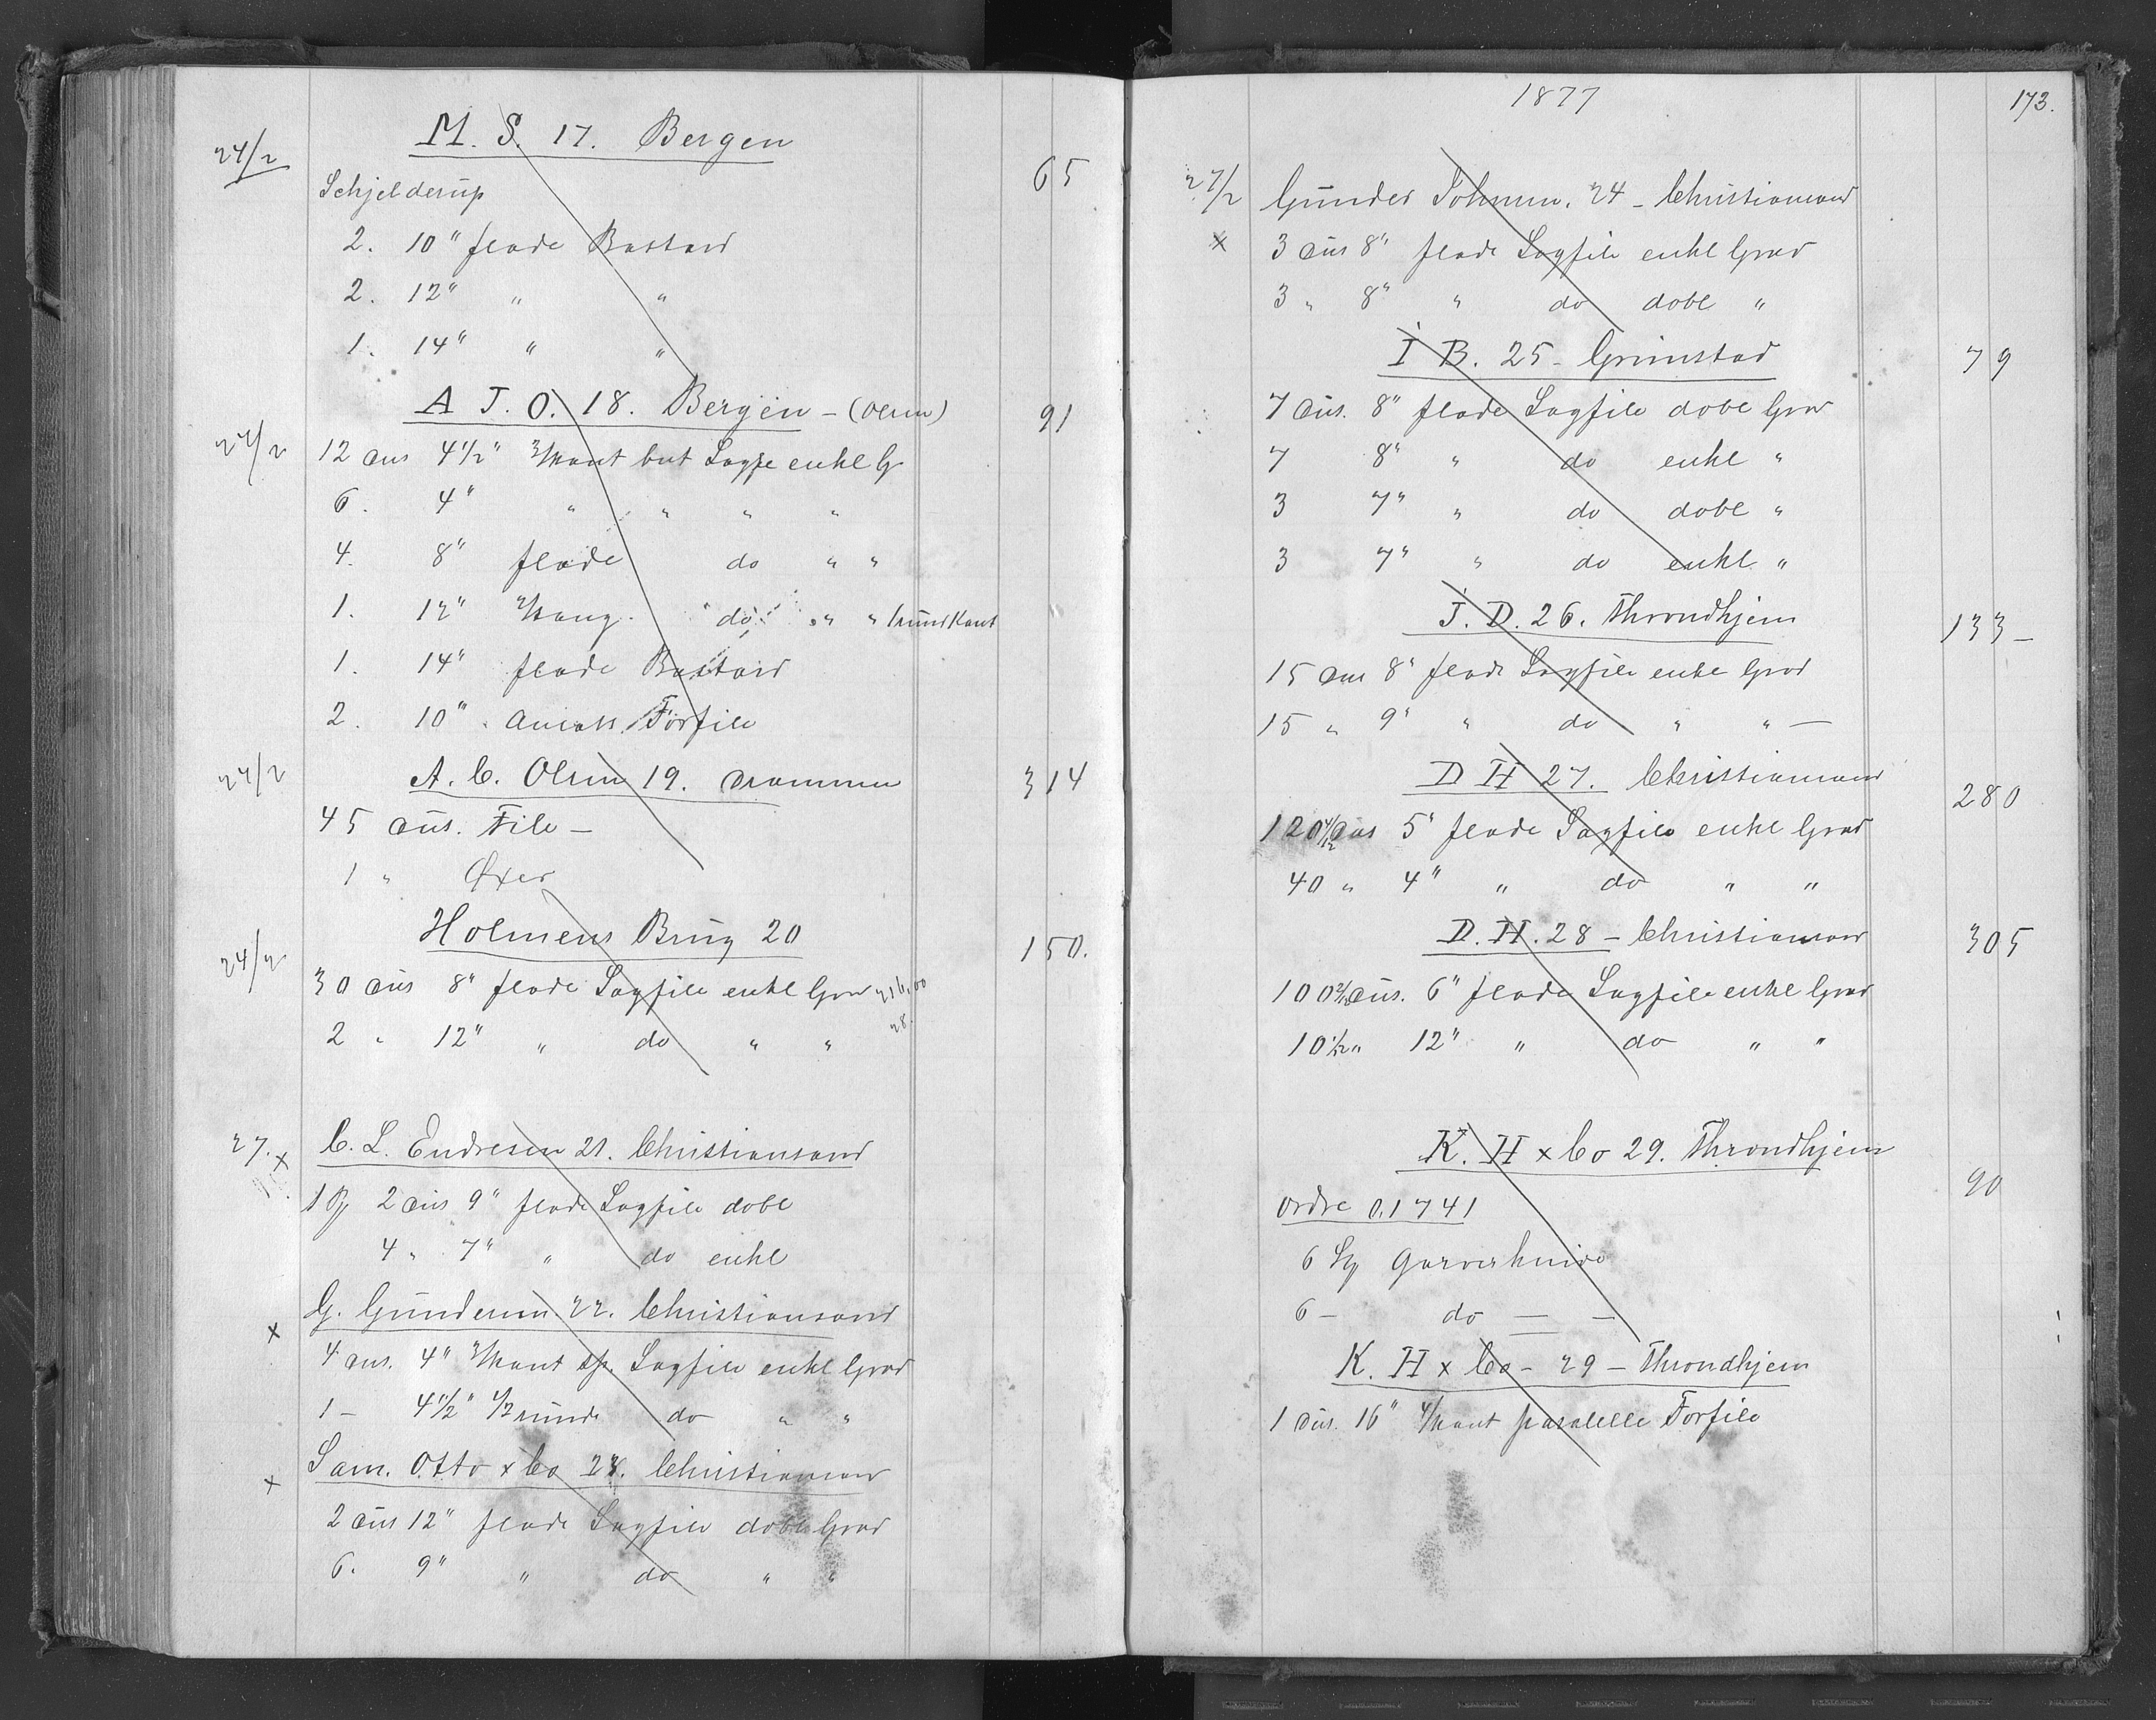 M. S. 17. Bergen
24/2 65
Schjelderup
2. 10" flade Bastard
2. 12" " "
1. 14" " "
A J. O. 18. Bergen - (Olsen)
91
24/2 12 dus 4 1/2" 3/kant but Sagfe enkl G
6. 4" " " " "
4. 8" flade do " "
1. 12" do " " 1 rund Kant
1. 14" flade Bastard
2. 10" Ansats Forfile
24/2 A. C. Olsen 19. Drammen 314
45 dus. File -
1 " Øxer
Holmens Brug 20
24/2 150.
30 dus 8" flade Sagfile enkl Grad 216,00
2 " 12" " do " " 28.
27. x C. L. Endresen 21. Christiansand
1 Pj 2 dus 9" flade Sagfile dobl
4 " 7" " do enkl
G. Gundersen 22. Christiansand
x
4 dus. 4" 3/kant sp. Sagfile enkl Grad
1 - 4 1/2" 1/2 runde do " "
x Sam. Otto x Co 23. Christiansand
2 dus 12" flade Sagfile dobl Grad
6. 9" " do " "
1877 173.
27/2 Gunder Johnsen. 24 - Christiansand
x 3 dus 8" flade Sagfile enkl Grad
3 " 8" " do dobl "
I B. 25 - Grimstad 79
7 dus. 8" flade Sagfile dobl Grad
7 8" " do enkl "
3 7" " do dobl "
3 7" " do enkl "
J. D. 26. Throndhjem 133 -
15 dus 8" flade Sagfile enkl Grad
15 " 9" " do " " -
D H 27. Christiansand 280
120 4/12 dus 5" flade Sagfile enkl Grad
40 " 4" " do " "
D. H. 28 - Christiansand 305
100 2/12 dus. 6" flade Sagfile enkl Grad
10 1/2 " 12" " do " "
K. H x Co 29. Throndhjem
90
Ordre 0.1741
6 Sty Garverknive
6 - do - -
K. H x Co - 29 - Throndhjem
1 dus. 16" 4/kant paralelle Forfile